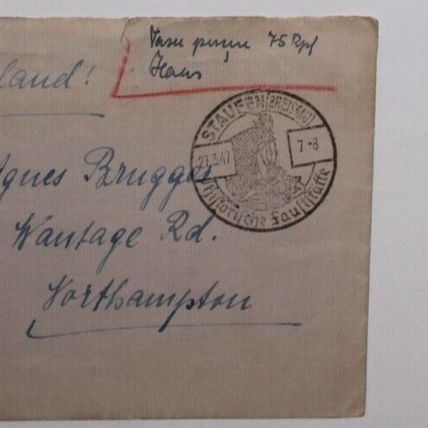 Taxe perçue 75 Rpf
Haus
land!
STAUFEN (BREISGAU)
27.3.47
7-8
Historische Fauststätte
Agnes Brugger
Wantage Rd.
Northampton